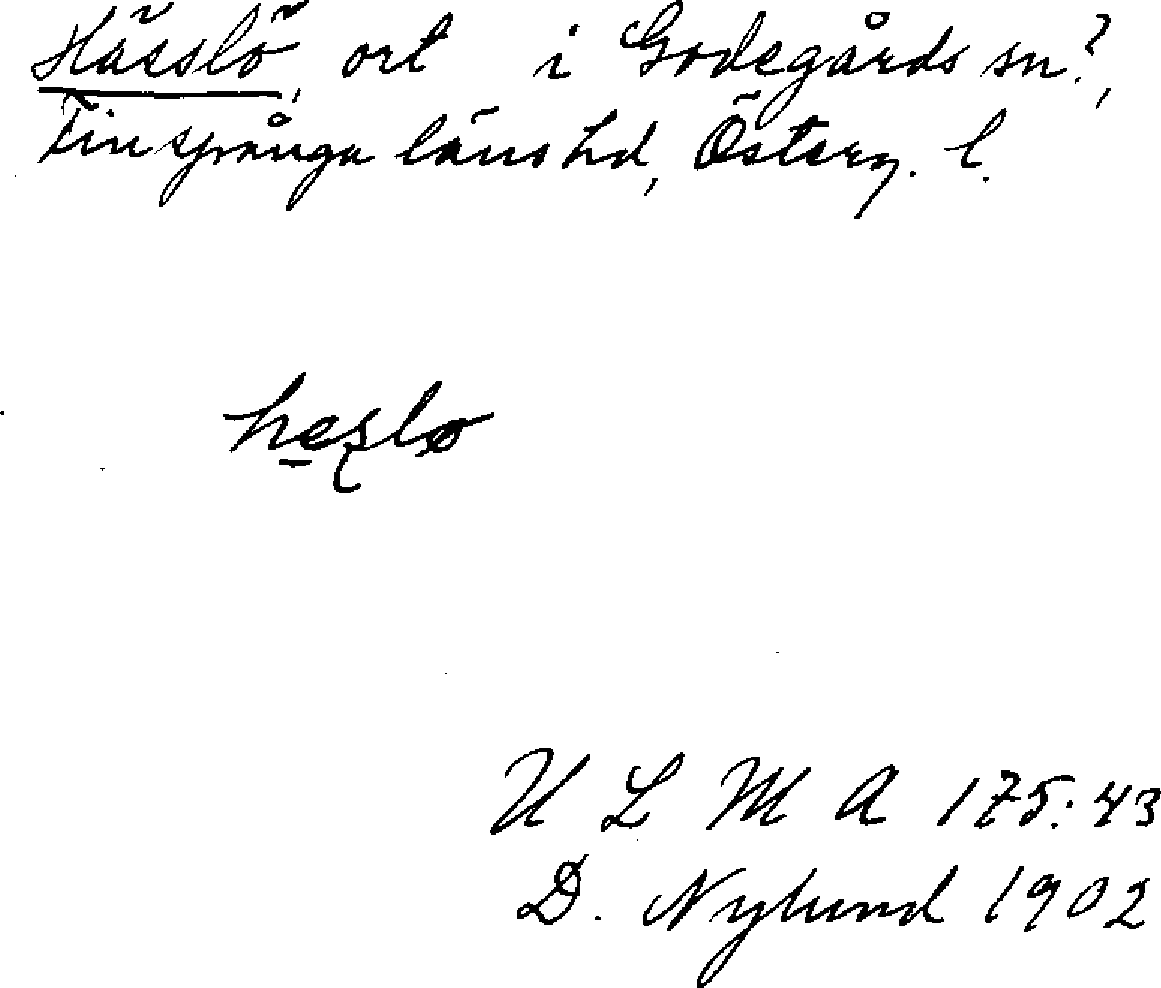 Hässlö, ort i Godegårds sn?,
Finspånga läns hd, Österg. l.
heslø
U L M A 175:43
D. Nylund 1902